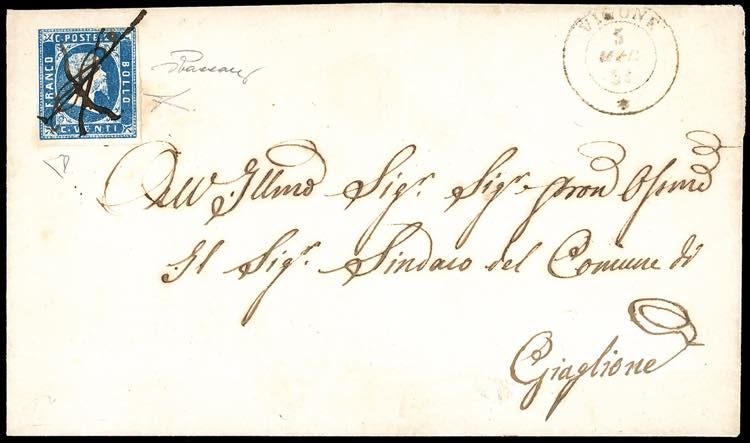 C. POSTE
FRANCO
BOLLO
C. VENTI
VIGONE
5
MAR
All' Illmo Sigr. Sigr. pron Osmo
Il Sigr. Sindaco del Comune di
Giaglione